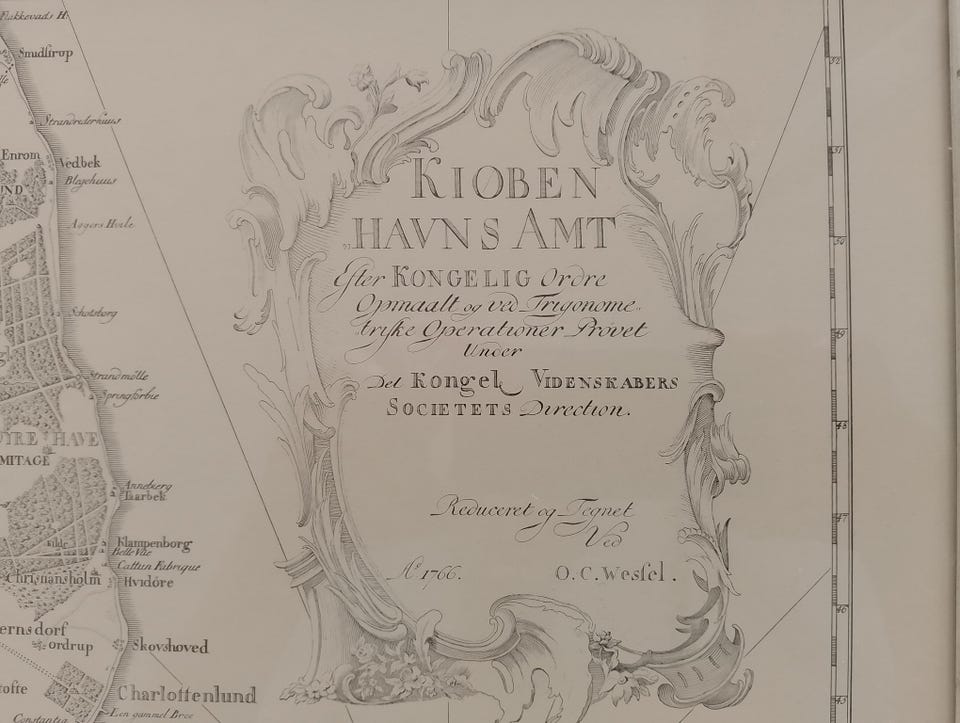 Smidstrup
Strandrederhuus
Enrom
Vedbek
Blegehuus
Aggers Hvile
Schotsborg
Strandmölle
Springforbie
DYRE HAVE
Anneberg
Taarbek
Kilde
Klampenborg
Belle Vüe
Cattun Fabrique
Christiansholm
Hvidöre
ernsdorf
ordrup
Skovshoved
tofte
Charlottenlund
Constantia
Een gammel Broe
KIØBEN
HAVNS AMT
Efter KONGELIG Ordre
Opmaalt og ved Trigonome-
triske Operationer Prövet
Under
Det Kongel. VIDENSKABERS
SOCIETETS Direction.
Reduceret og Tegnet
Ved
A° 1766.
O. C. Wessel.
52
51
50
49
48
47
46
45